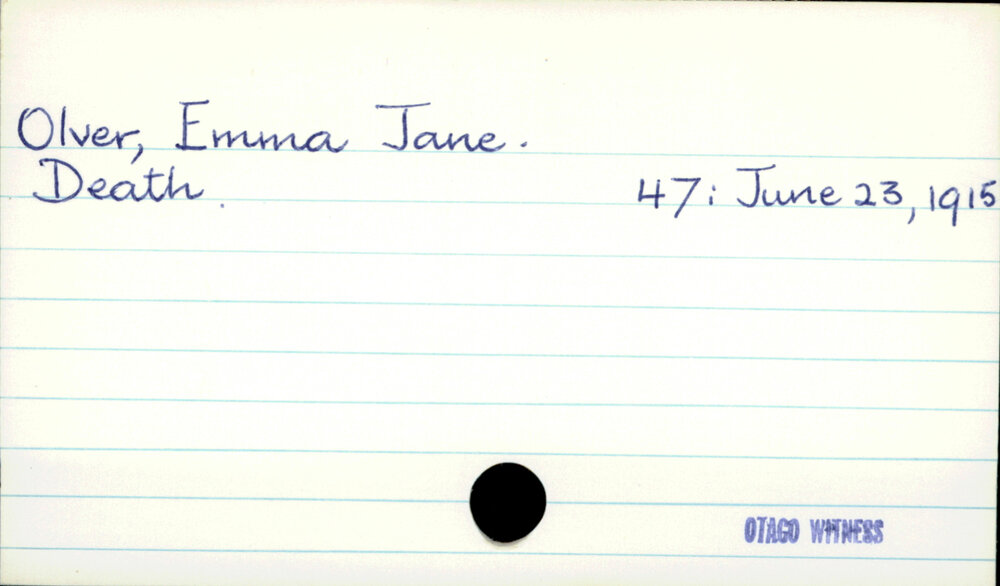 Olver, Emma Jane.
Death. 47: June 23, 1915
OTAGO WITNESS